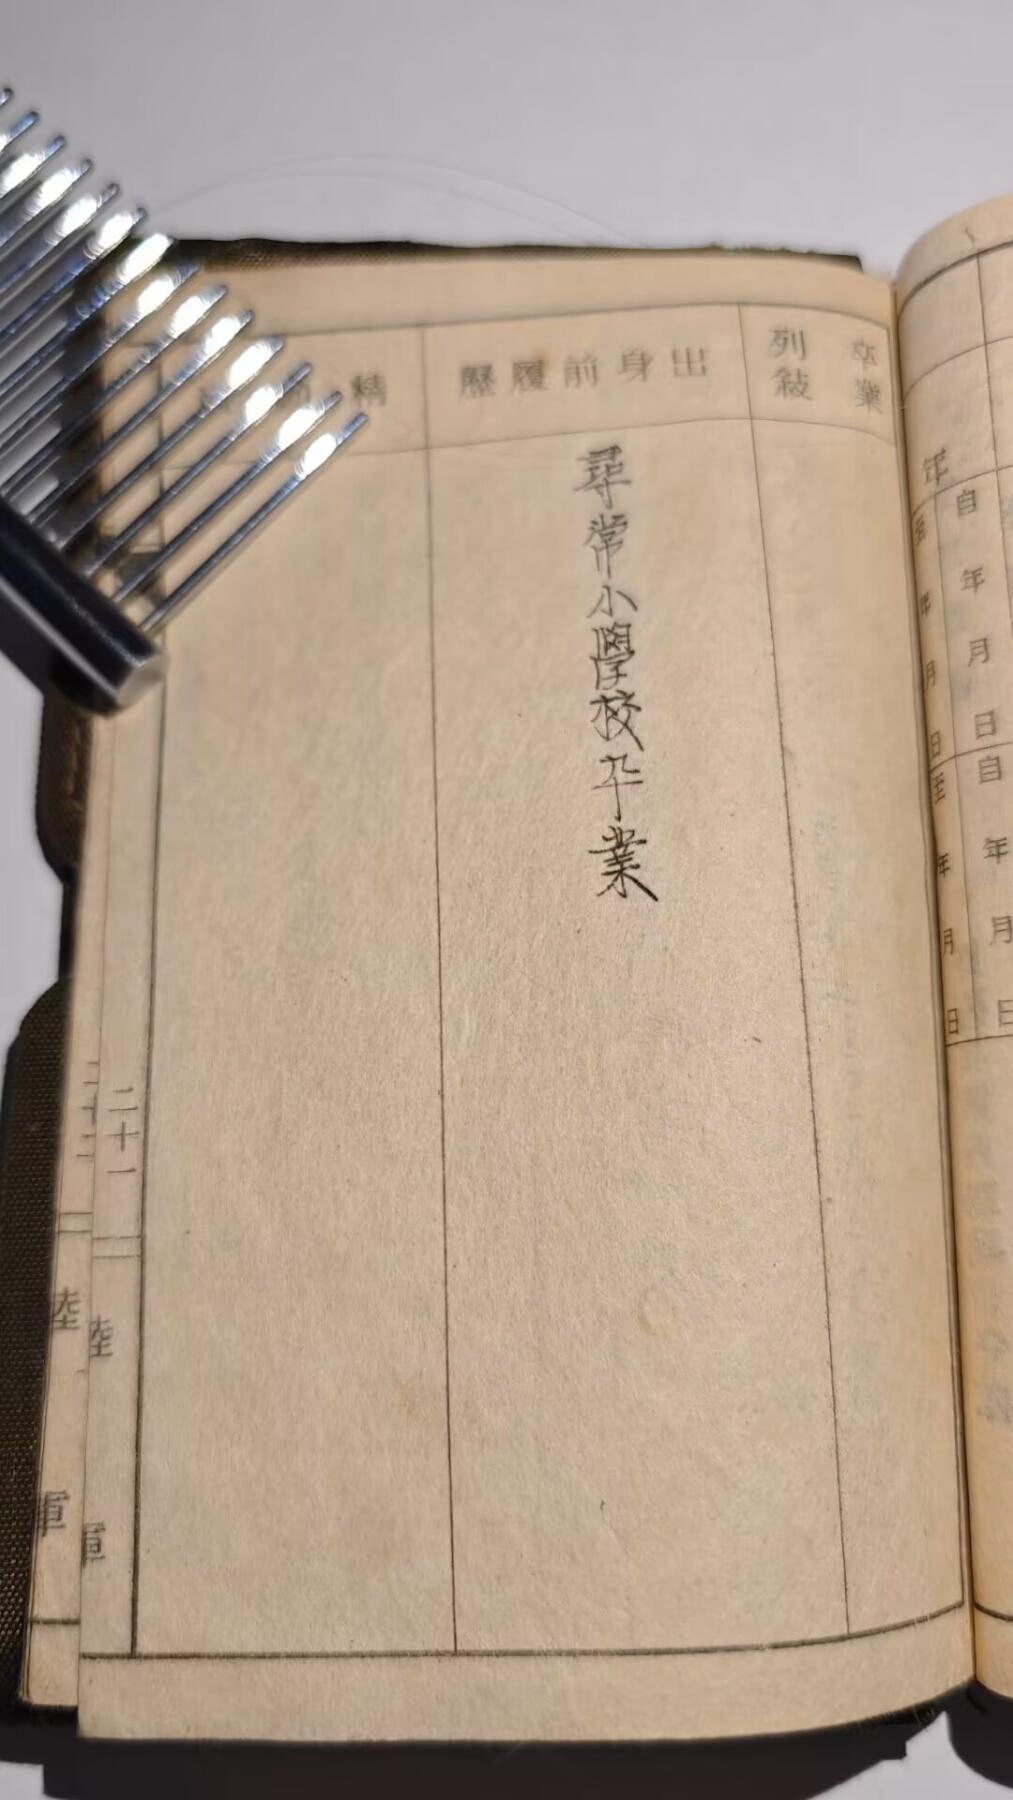 年
自 年 月 日
至 年 月 日
自 年 月 日
至 年 月 日
卒業
列敍
出身前履歷
尋常小學校卒業
精
二十一
陸
軍
陸
軍